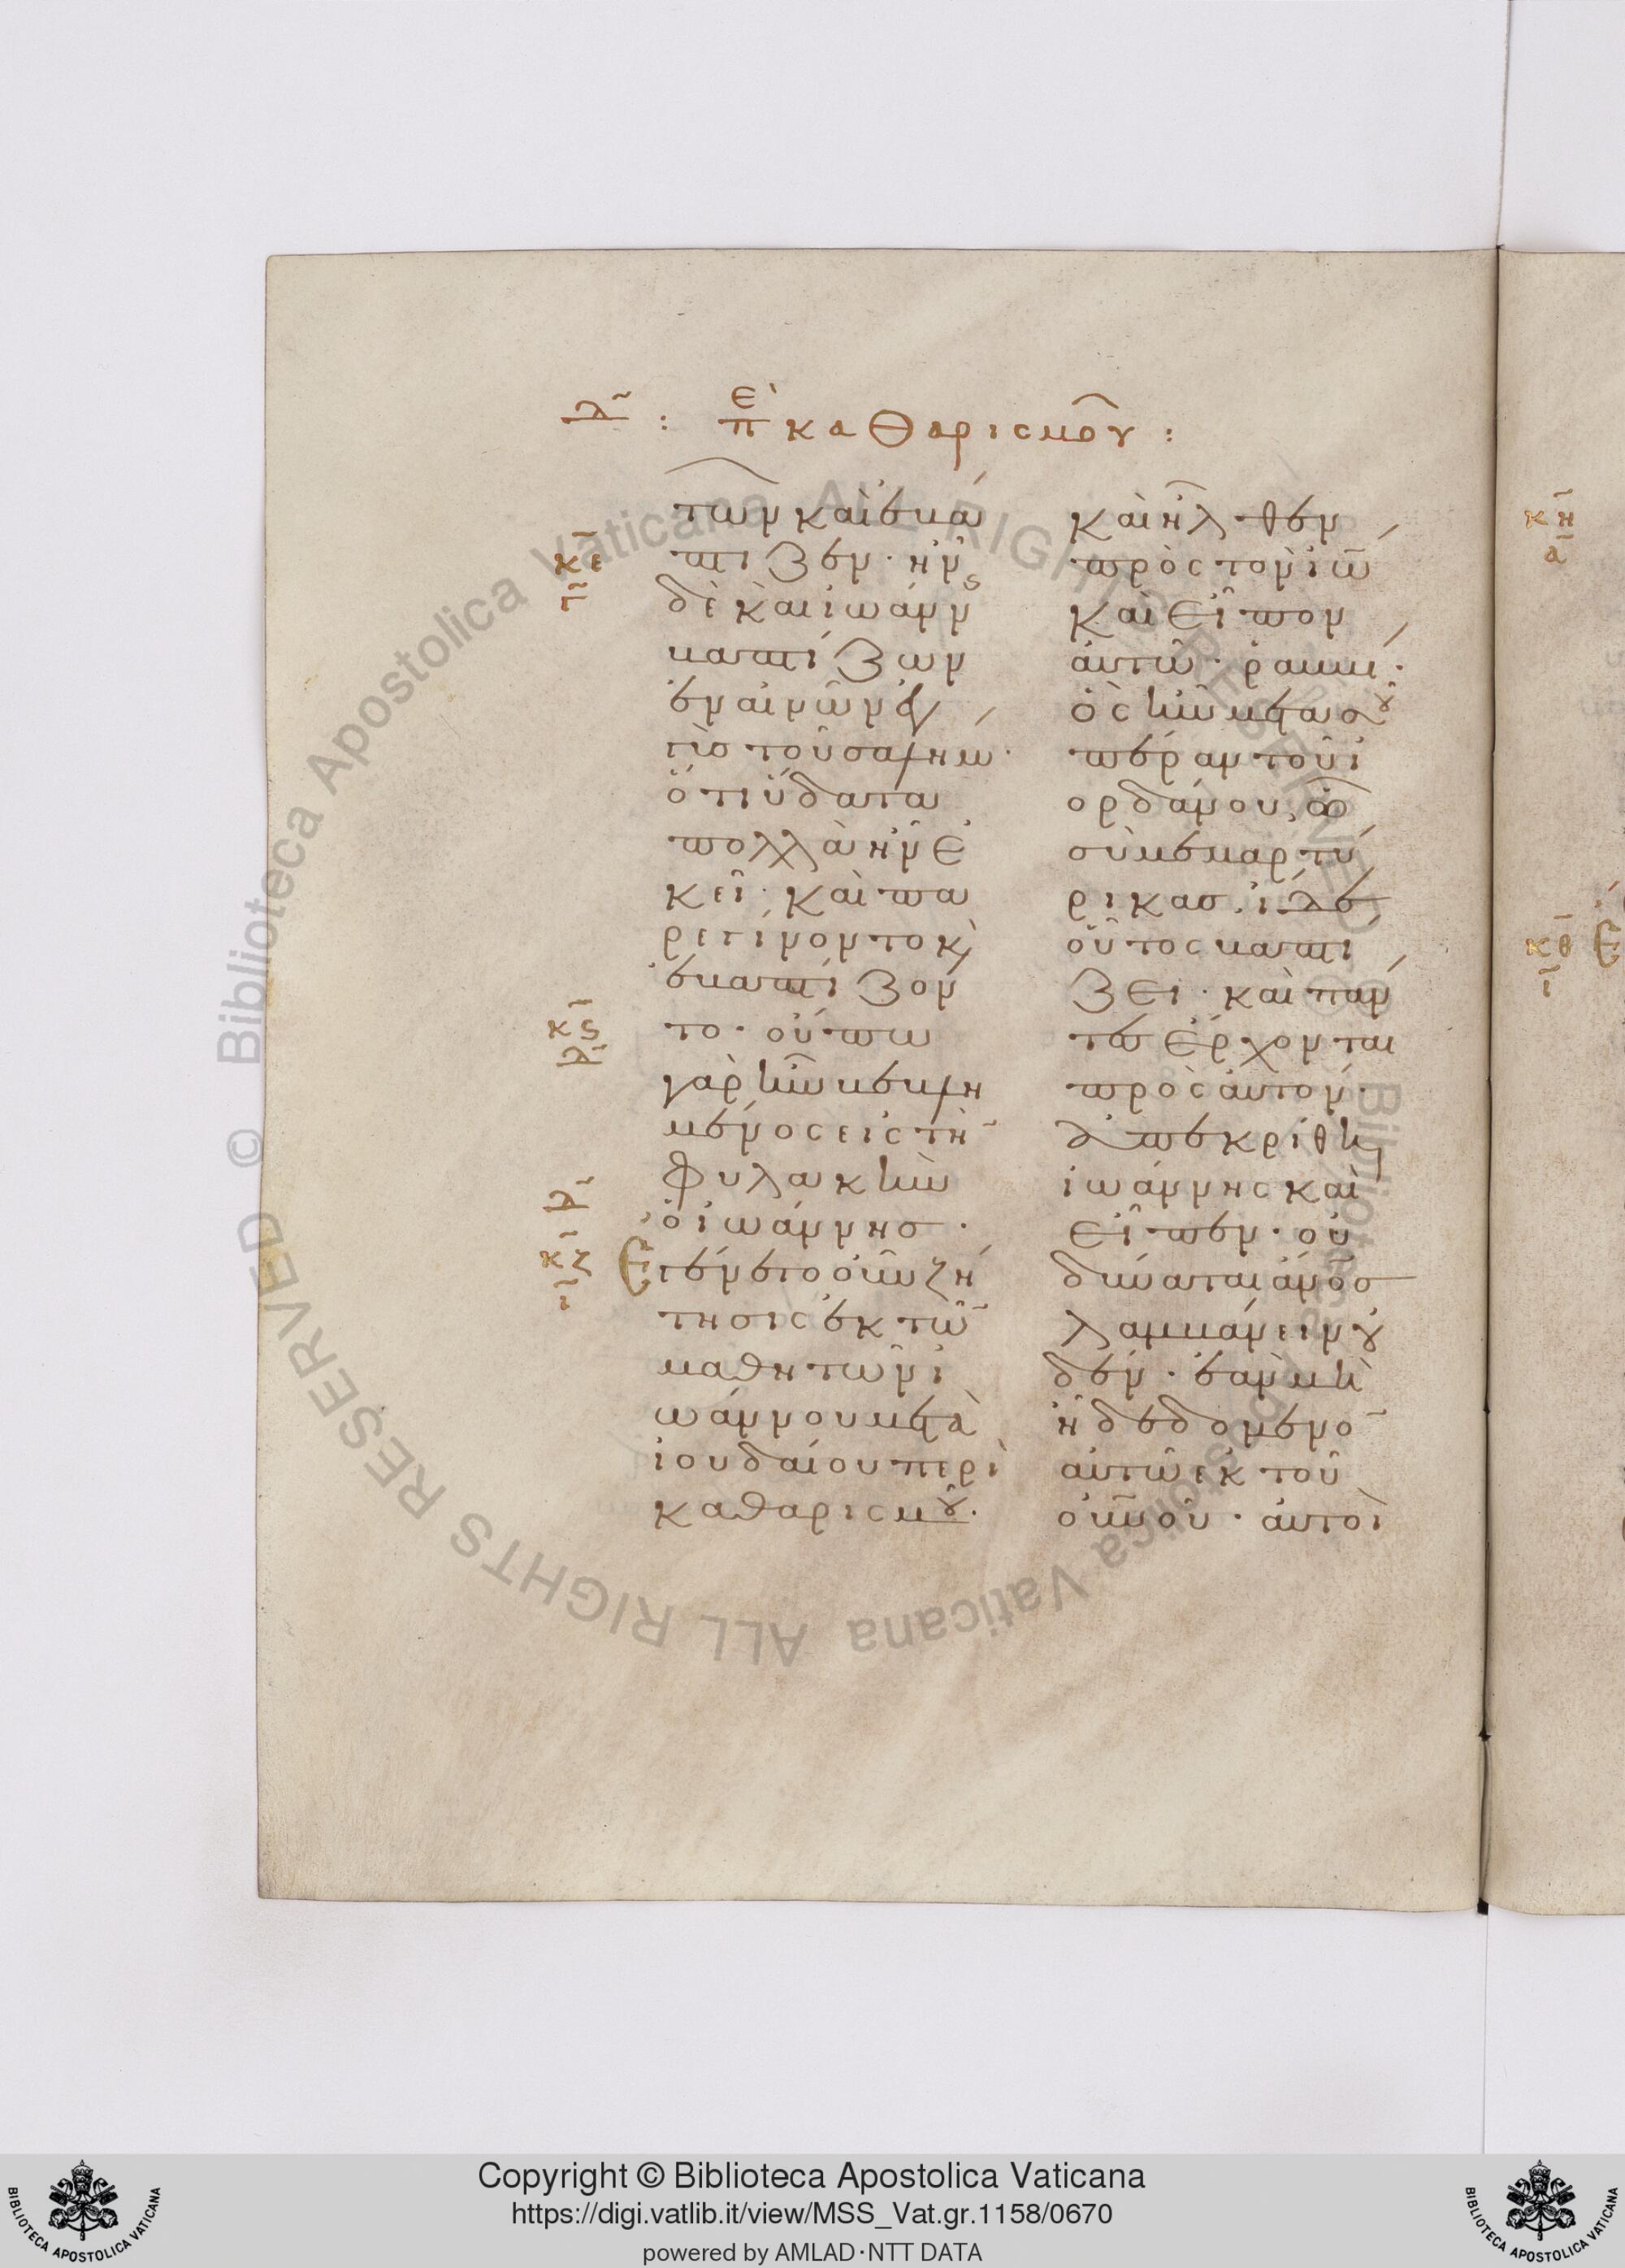 λ̅ : πὲ καθαρισμοῦ :
των καὶ ἐβά
πτιζεν · ἦν
δὲ καὶ ἰωάνν(ης)
βαπτίζων
ἐν αἰνῶν ἐγ
γὺς τοῦ σαλήμ ·
ὅτι ὕδατα
πολλὰ ἦν ἐ
κεῖ · καὶ πα
ρεγίνοντο κ(αὶ)
ἐβαπτίζον
το · οὔπω
γὰρ ἦν βεβλη
μένος εἰς τὴ̅
φυλακὴν
ὁ ἰωάννησ ·
Ἐγένετο οὖν ζή
τησις ἐκ τῶ̅
μαθητῶν ἰ
ωάννου μετὰ
ἰουδαίου περὶ
καθαρισμοῦ ·
κε̅
γ̅
κϛ̅
κζ̅
ι̅
καὶ ἦλθεν
πρὸς τὸν ἰω̅
καὶ εἶπον
αὐτῶ · ῥαββί ·
ὃς ἦν μετὰ σοῦ
πέραν τοῦ ἰ
ορδάνου, ᾧ
σὺ μεμαρτύ
ρικασ · ἴδε
οὗτος βαπτί
ζει · καὶ πάν
τα ἔρχονται
πρὸς αὐτόν ·
ἀπεκρίθη
ἰωάννης καὶ
εἶπεν · οὐ
δύναται ἄνο̅σ
λαμβάνειν οὐ
δέν · ἐὰν μὴ
ἦ δεδομένο̅
αὐτῶ ἐκ τοῦ
οὐ̅νοῦ · αὐτοὶ
κη̅
α̅
κθ̅
ι̅
Copyright © Biblioteca Apostolica Vaticana
https://digi.vatlib.it/view/MSS_Vat.gr.1158/0670
powered by AMLAD·NTT DATA
BIBLIOTECA APOSTOLICA VATICANA
BIBLIOTECA APOSTOLICA VATICANA
© Biblioteca Apostolica Vaticana ALL RIGHTS RESERVED
© Biblioteca Apostolica Vaticana ALL RIGHTS RESERVED